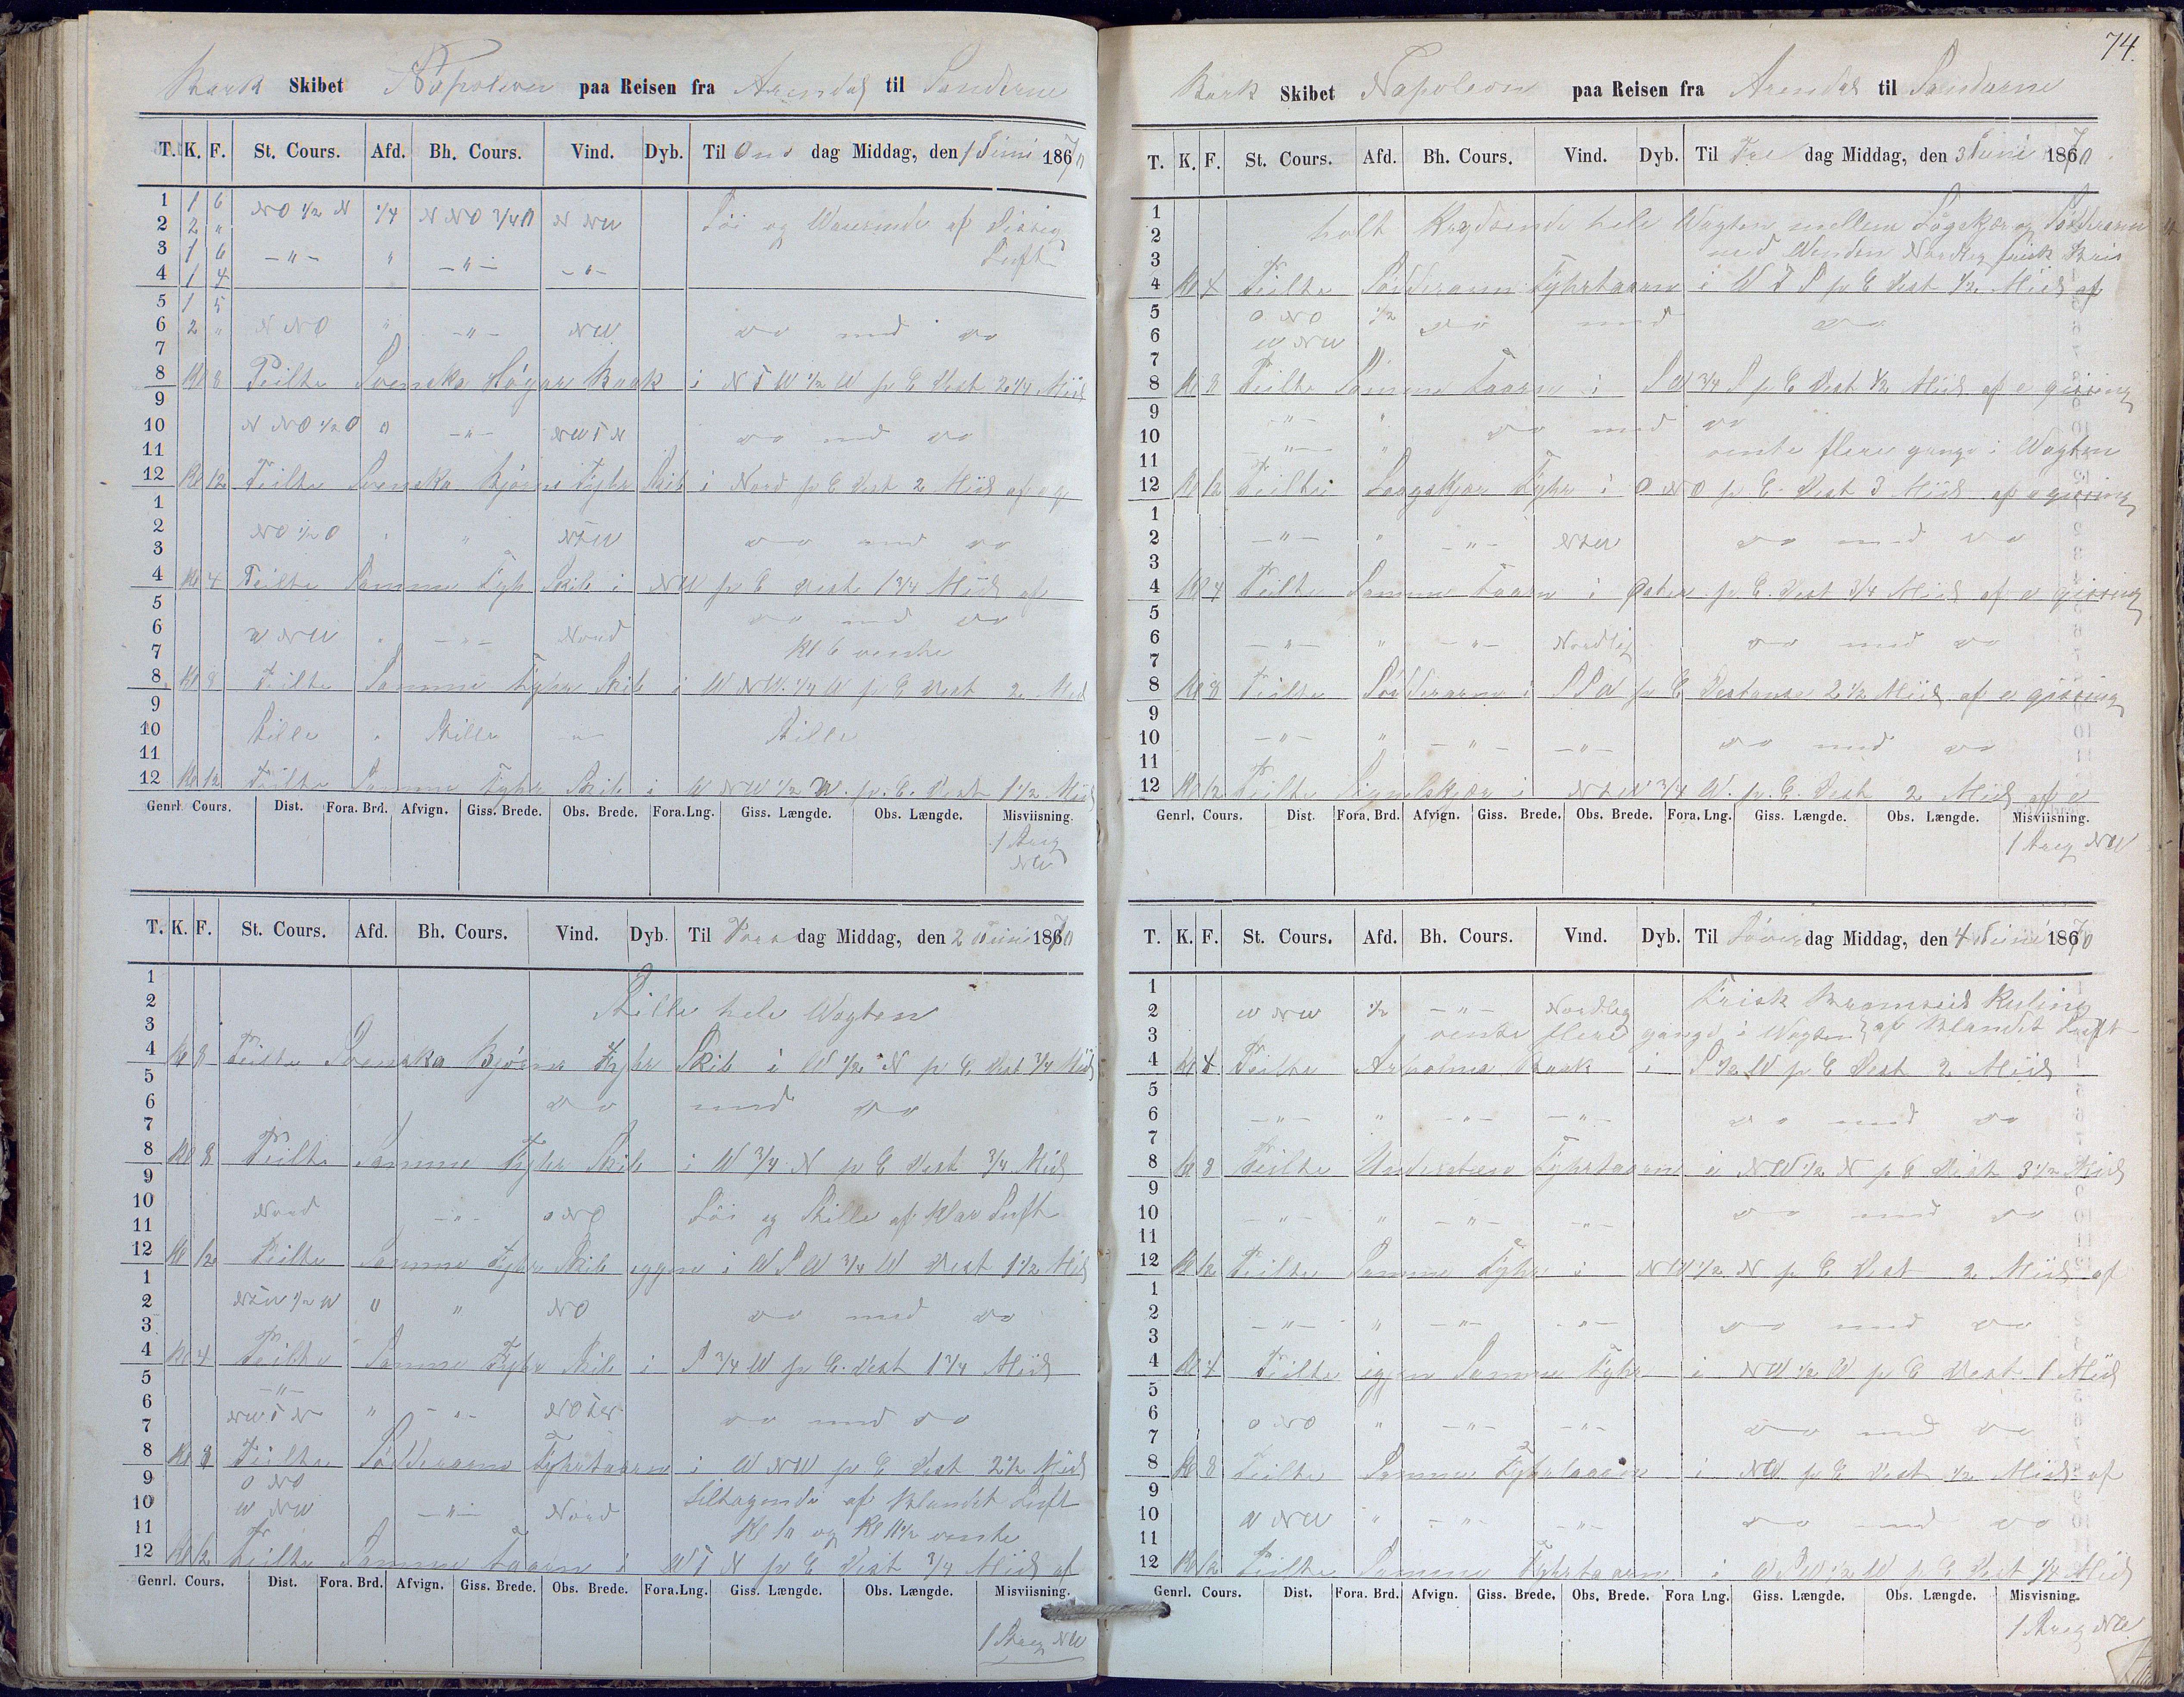 Bark Skibet Napoleon paa Reisen fra Arendal til Sunderne
T. K. F. St. Cours. Afd. Bh. Cours. Vind. Dyb. Til Ons dag Middag, den 1 Juni 1870
1 1 6
2 2 " NO 1/2 N 1/4 N NO 3/4 O N NW Löi og af Disig
3 1 6 -"- " -"- -"- Luft
4 1 4
5 1 5
6 2 " N NO " -"- NW do med do
7
8 Kl 8 Peilte Svenska Högar Baak i N T W 1/2 W p C Dest 2 1/4 Miil
9
10 N NO 1/2 O " -"- NW T N do med do
11
12 Kl 12 Peilte Svenska Bjørn Fyhr Skib i Nord p C Dest 2 Miil af
1
2 NO 1/2 O " " NTW do med do
3
4 Kl 4 Peilte Samme Fyhr Skib i NW p C Dest 1 3/4 Miil af
5 do med do
6 W NW " -"- Nord
7 Kl 6 vendte
8 Kl 8 Peilte Samme Fyhr Skib i W NW 1/4 W p C Dest 2 Miil
9
10 Stille " Stille -"- Stille
11
12 Kl 12 Peilte Samme Fyhr Skib i W NW 1/2 W. p. C. Dest 1 1/2 Miil
Genrl. Cours. Dist. Fora. Brd. Afvign. Giss. Brede. Obs. Brede. Fora.Lng. Giss. Længde. Obs. Længde. Misviisning.
1 Streg
NW
T. K. F. St. Cours. Afd. Bh. Cours. Vind. Dyb. Til Tors dag Middag, den 2 Juni 1870
1
2 Stille hele Wagten
3
4 Kl 8 Peilte Svenska Bjørn Fyhr Skib i W 1/2 N p C Dest 3/4 Miil
5
6 do med do
7
8 Kl 8 Peilte Samme Fyhr Skib i W 3/4 N p C Dest 3/4 Miil
9
10 Nord -"- O NO Löi og Stille af Klar Luft
11
12 Kl 12 Peilte Samme Fyhr Skib iggen i W S W 3/4 W Dest 1 1/2 Miil
1
2 NTW 1/2 W " " NO do med do
3
4 Kl 4 Peilte Samme Fyhr Skib i S 3/4 W p C. Dest 1 3/4 Miil
5 -"-
6 NW T N " -"- do med do
7
8 Kl 8 Peilte Södderarm Fyhrtaarn i W NW p C Dest 2 1/2 Miil
9 O NO tiltagende af Blandet Luft
10 W NW -"- Nord
11 Kl 10 og Kl 11 1/2 vendte
12 Kl 12 Peilte Samme taarn i W T N p C Dest 3/4 Miil af
Genrl. Cours. Dist. Fora. Brd. Afvign. Giss. Brede. Obs. Brede. Fora.Lng. Giss. Længde. Obs. Længde. Misviisning.
1 Streg NW
74.
Bark Skibet Napoleon paa Reisen fra Arendal til Sundarne
T. K. F. St. Cours. Afd. Bh. Cours. Vind. Dyb. Til Fre dag Middag, den 3 Juni 1870
1
2 holt Krydsende hele Wagten mellem Lågskjer og Södderarm
3 med Vinden Nordlig frisk Bris
4 Kl 4 Peilte Södderarm Fyhrtaarn i W T S p C Dest 1/2 Miil af
5 O NO 1/2 do med do
6 W NW
7
8 Kl 8 Peilte Samme Taarn i S W 3/4 S p C Dest 1/2 Miil af e gissing
9 -"- "
10 -"- " do med do
11 vente flere gange i Wagten
12 Kl 12 Peilte Laagskjær Fyhr i O NO p C. Dest 3 Miil af e gissing
1
2 -"- " -"- NTW do med do
3
4 Kl 4 Peilte Samme Taarn i Osten p C. Dest 3/4 Miil af e gissing
5
6 -"- " -"- Nordlig do med do
7
8 Kl 8 Peilte Södderarm i S S W p C Destanse 2 1/2 Miil af e gissing
9
10 -"- " -"- -"- do med do
11
12 Kl 12 Peilte Signelskjær i NTW 3/4 W. p. C. Dest 2 Miil af e
Genrl. Cours. Dist. Fora. Brd. Afvign. Giss. Brede. Obs. Brede. Fora. Lng. Giss. Længde. Obs. Længde. Misviisning.
1 Streg NW
T. K. F. St. Cours. Afd. Bh. Cours. Vind. Dyb. Til Löver dag Middag, den 4 Juni 1870
1 Frisk Bramseils Kuling
2 W NW 1/2 -"- Nordlig
3 vente flere gange i Wagten af Blandet Luft
4 Kl 4 Peilte Arholma Baak i S 1/2 W p C Dest 2 Miil
5
6 -"- " -"- -"- do med do
7
8 Kl 8 Peilte Understens Fyhrtaarn i NW 1/2 N p C Dist 3 1/2 Miil
9
10 -"- " -"- -"- do med do
11
12 Kl 12 Peilte Samme Fyhr i NW 1/2 N p C Dest 2 Miil af
1
2 -"- " -"- -"- do med do
3
4 Kl 4 Peilte igjen Samme Fyhr i NW 1/2 W p C Dest 1 Miil
5
6 O NO " -"- -"- do med do
7
8 Kl 8 Peilte Samme Fyhrtaarn i NW p C Dest 1/2 Miil af
9
10 W NW " -"- -"- do med do
11
12 Kl 12 Peilte Samme Fyhrtaarn i W S W 1/2 W p C Dest 1/4 Miil
Genrl. Cours. Dist. Fora. Brd. Afvign. Giss. Brede. Obs. Brede. Fora Lng. Giss. Længde. Obs. Længde. Misvisning.
1 Streg NW